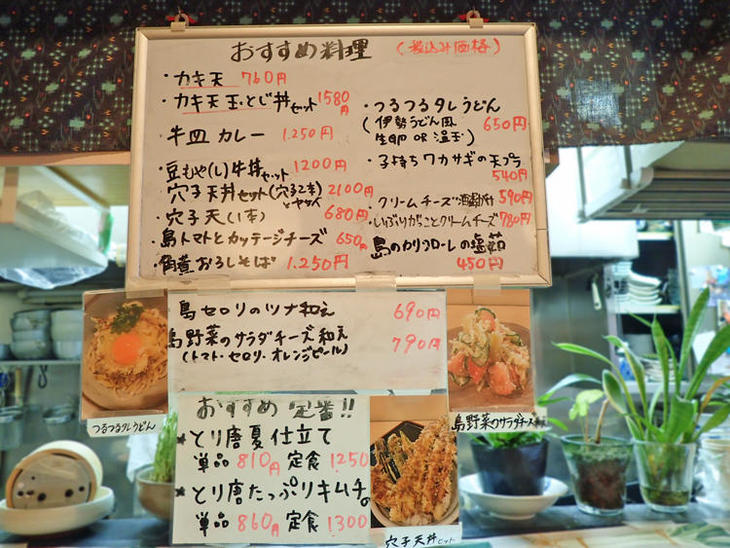 おすすめ料理 (税込み価格)
・カキ天 760円
・カキ天玉とじ丼セット 1580円
・牛皿カレー 1.250円
・豆もやし牛丼セット 1200円
・穴子天丼セット(穴子2本とヤサイ) 2100円
・穴子天(1本) 680円
・島トマトとカッテージチーズ 650円
・角煮おろしそば 1.250円
・つるつるタレうどん
(伊勢うどん風 650円
生卵 OR 温玉)
・子持ちワカサギの天プラ
540円
・クリームチーズ酒盗 590円
・いぶりがっことクリームチーズ 780円
島のカリフローレの
450円
・島セロリのツナ和え 690円
島野菜のサラダチーズ和え 790円
(トマト・セロリ・オレンジピール)
つるつるタレうどん
島野菜のサラダチーズ和え
おすすめ 定番!!
*とり唐夏仕立て
単品 810円 定食 1250
*とり唐たっぷりキムチ。
単品 860円 定食 1300
穴子天丼セット